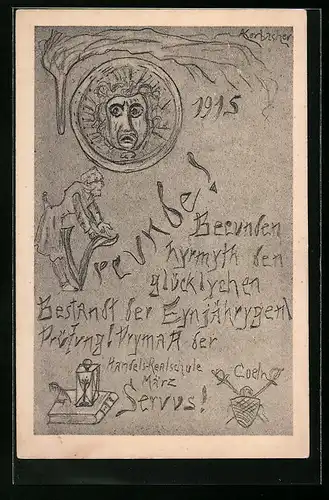 AKorbscher
1915
Freunde!
Becunden
hyrmyth den
glücklychen
Bestandt der Eynjährygen
Prüfung! Pryma A der
Handels-Realschule
März
Coeln
Servus!